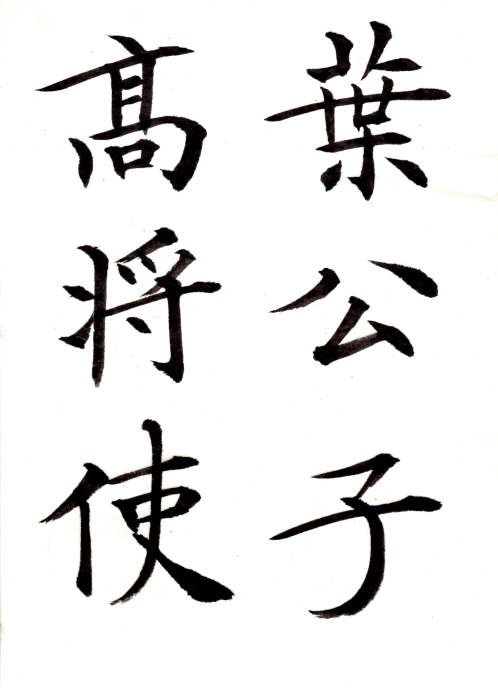 葉公子
髙将使